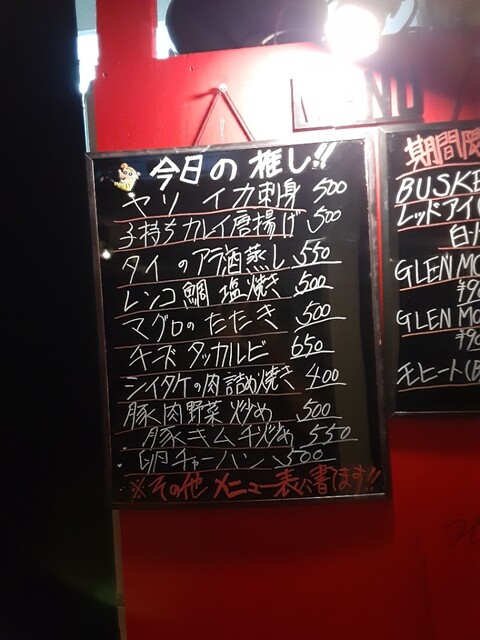 MENU
今日の推し!!
ヤリイカ刺身 500
子持ちカレイ唐揚げ 500
タイのアラ酒蒸し 550
レンコ鯛 塩焼き 500
マグロのたたき 500
チーズタッカルビ 650
シイタケの肉詰め焼き 400
豚肉野菜炒め 500
豚キムチ炒め 550
卵チャーハン 500
※その他メニュー表に書てます!!
期間限
BUSK
レッドアイ
GLEN MO
¥90
GLEN MO
¥90
モヒート(